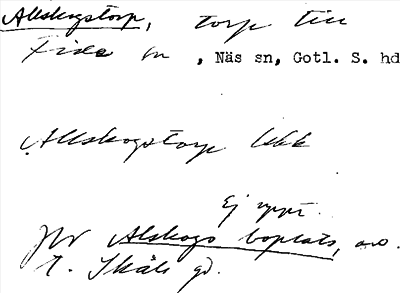 Allskogstorp, torp till
Fide sn , Näs sn, Gotl. S. hd
Allskogstorp Ubk
Ej uppt.
Jfr Alskogs boplats, av.
t. Skåls gd.